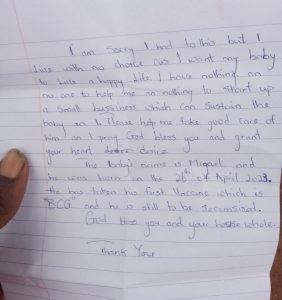 I am sorry I had to this but I
have with no choice cus I want my baby
to live a happy life. I have nothing an
no one to help me an nothing to start up
a small bussiness which can sustain the
baby an I. Please help me take good care of
him an I pray God bless you and grant
your heart desire
The baby's name is Miguel and
he was born on the 28th of April 2023.
He has taken his first Vaccine which is
"BCG" and he is still to be
God bless you and your house whole.
Thank You